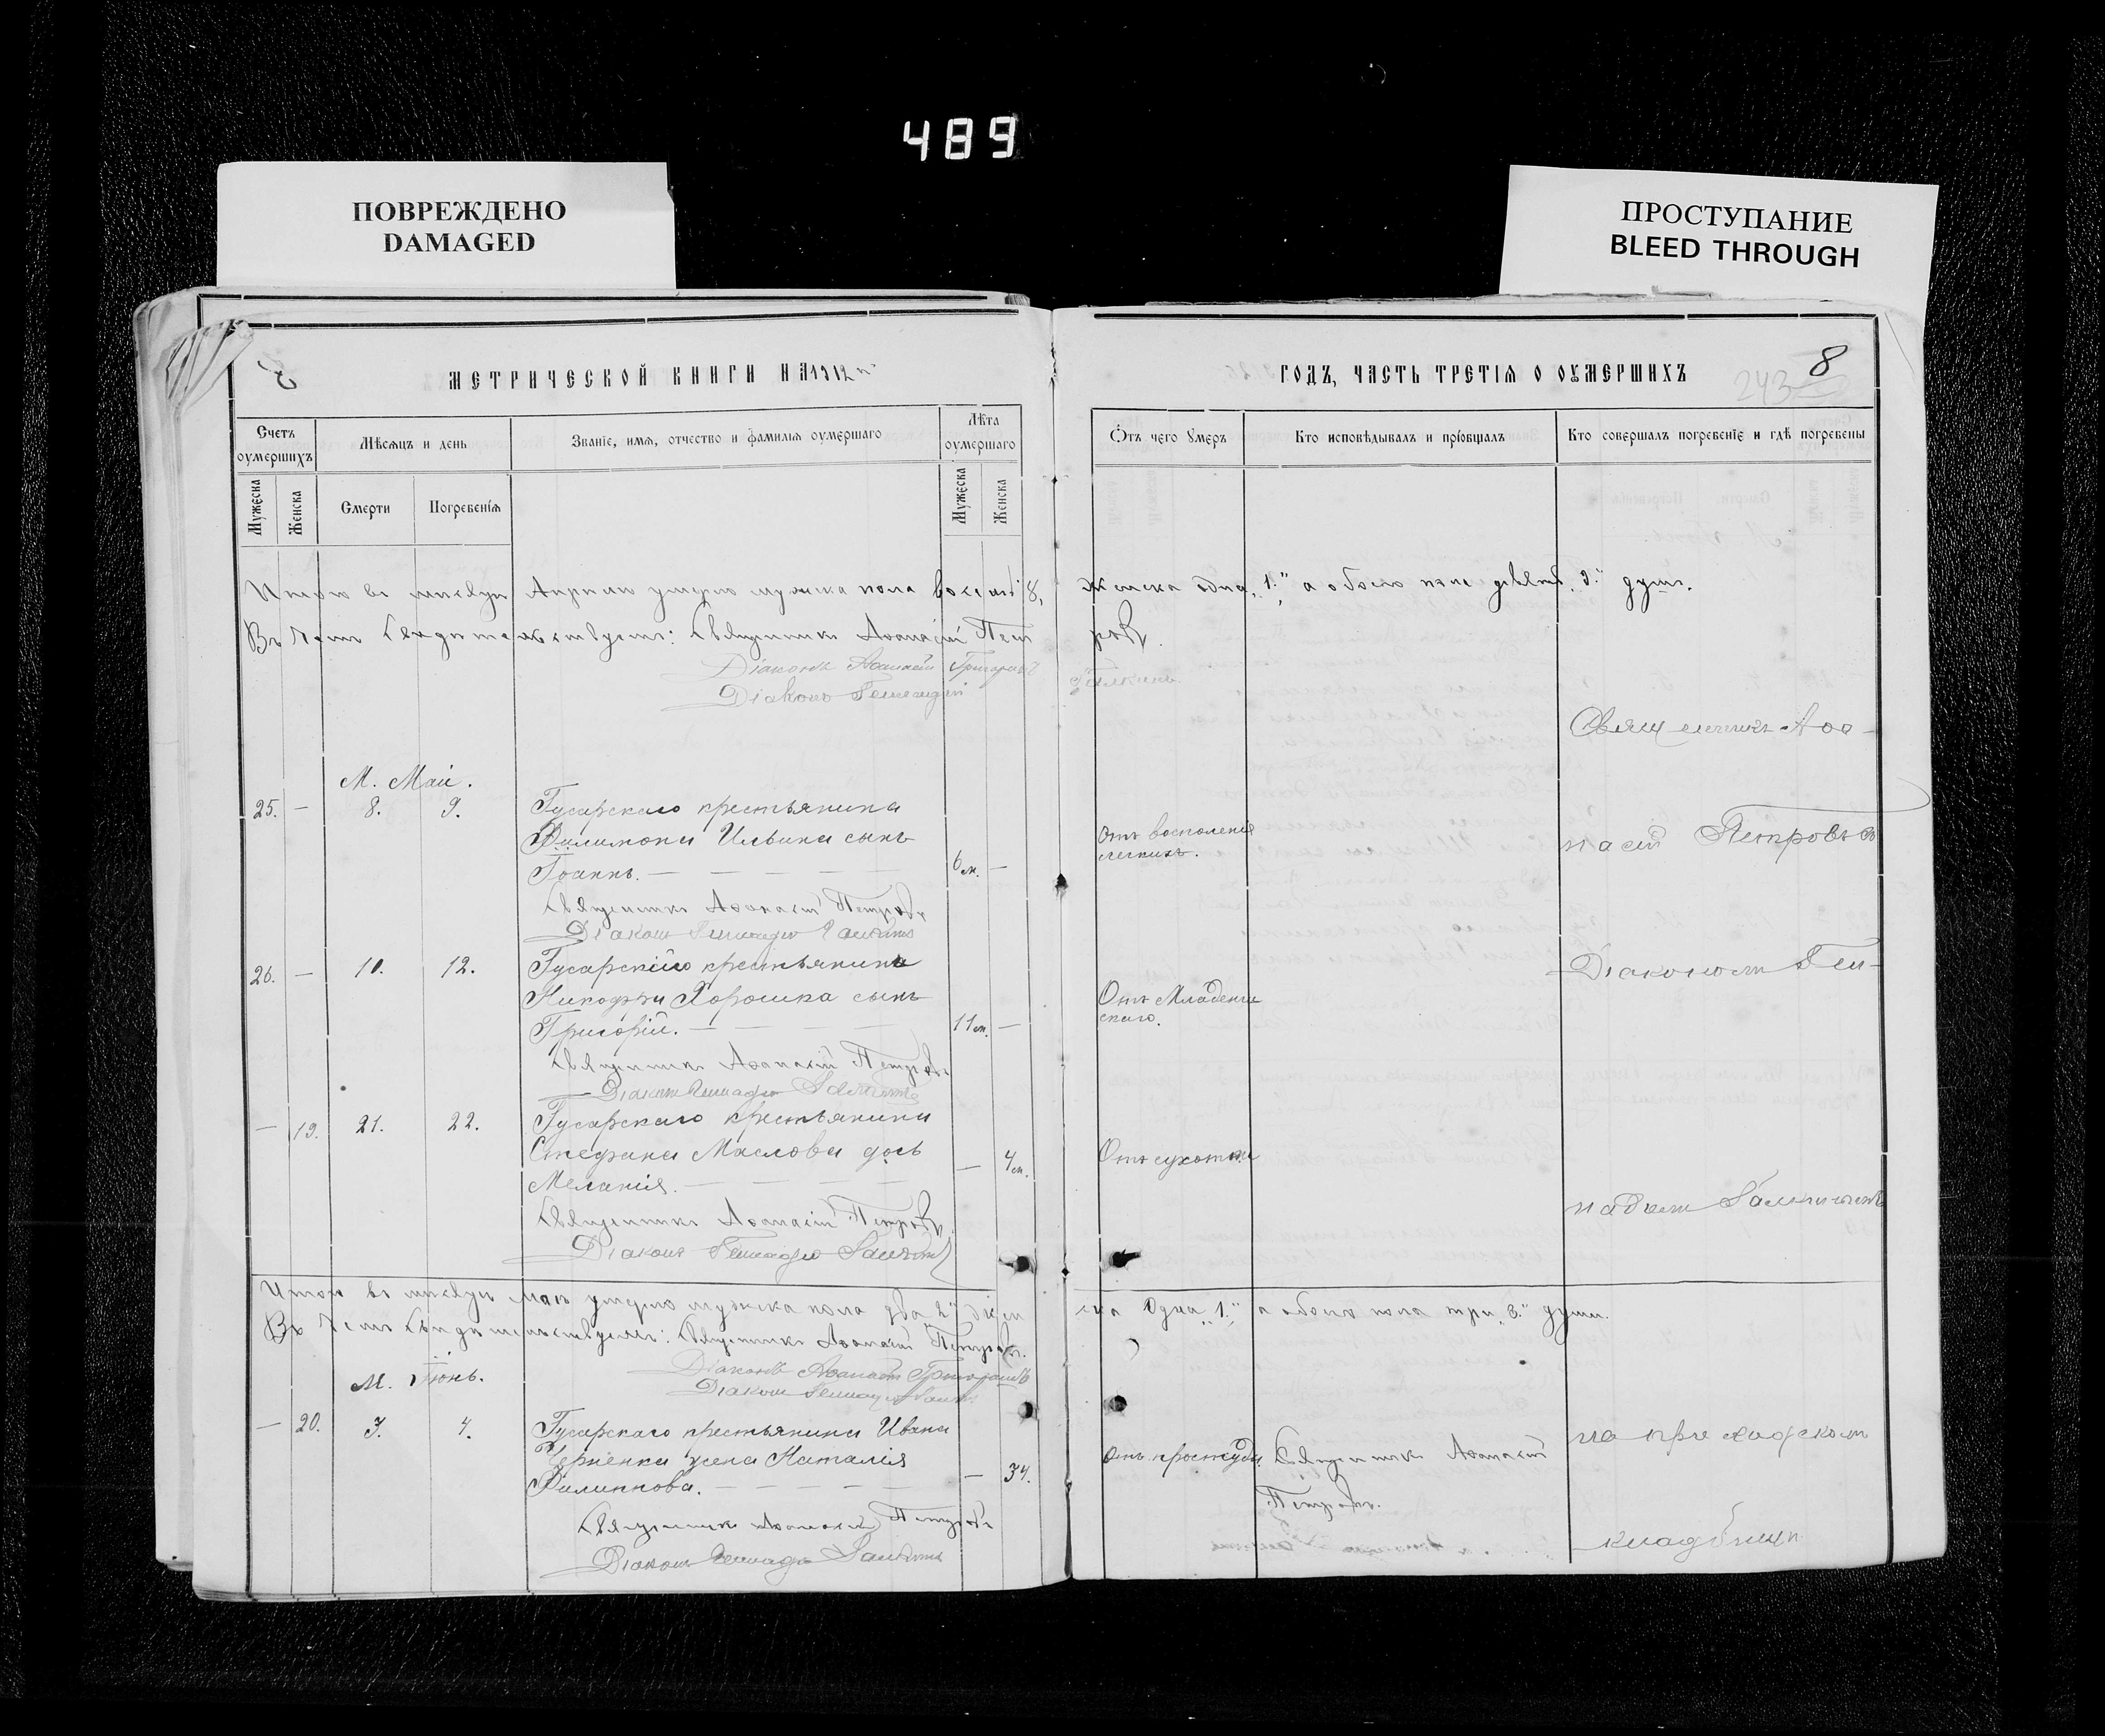 489
ПОВРЕЖДЕНО
DAMAGED
ПРОСТУПАНИЕ
BLEED THROUGH
МЕТРИЧЕСКОЙ КНИГИ НА 1912й
ГОДЪ, ЧАСТЬ ТРЕТІЯ О ОУМЕРШИХЪ
8
243
Счетъ оумершихъ
Мѣсяцъ и день
Званіе, имя, отчество и фамилія оумершаго
Лѣта оумершаго
Ѿъ чего Умеръ
Кто исповѣдывалъ и пріобщалъ
Кто совершалъ погребеніе и гдѣ погребены
Мужеска
Женска
Смерти
Погребенія
Мужеска
Женска
Итого въ мѣсяцѣ Апрѣлѣ умерло мужска пола восемь 8, женска одна „1.“ а обоего пола девять „9.“ душъ.
Въ чемъ свидѣтельствуемъ: Священникъ Аѳанасій Петровъ.
Діаконъ Аѳанасій Григоровъ
Діаконъ Геннадій Галкинъ
М. Май.
25. — 8. 9. Гусарскаго крестьянина
Филимона Ильина сынъ
Іоаннъ. — 6 м. — Отъ восполенія легкихъ.
Священникъ Аѳанасій Петровъ
Діаконъ Геннадій Галкинъ
26. — 10. 12. Гусарскаго крестьянина
Никодима Хорошка сынъ
Григорій. — 11 м. — Отъ Младенческаго.
Священникъ Аѳанасій Петровъ
Діаконъ Геннадій Галкинъ
— 19. 21. 22. Гусарскаго крестьянина
Стефана Маслова дочь
Меланія. — — 4 м. Отъ сухотки
Священникъ Аѳанасій Петровъ.
Діаконъ Геннадій Галкинъ
Итого въ мѣсяцѣ Маѣ умерло мужска пола два „2“ женска одна „1.“ а обоего пола три „3.“ души.
Въ чемъ свидѣтельствуемъ: Священникъ Аѳанасій Петровъ.
Діаконъ Аѳанасій Григоровъ
Діаконъ Геннадій Галкинъ
М. Іюнь.
— 20. 3. 4. Гусарскаго крестьянина Ивана
Черненка жена Наталія
Филиппова. — — 34. Отъ простуды. Священникъ Аѳанасій
Петровъ.
Священникъ Аѳанасій Петровъ
Діаконъ Геннадій Галкинъ
Священникъ Аѳа-
насій Петровъ съ
Діакономъ Ген-
надіем Галкинымъ
на приходскомъ
кладбищѣ